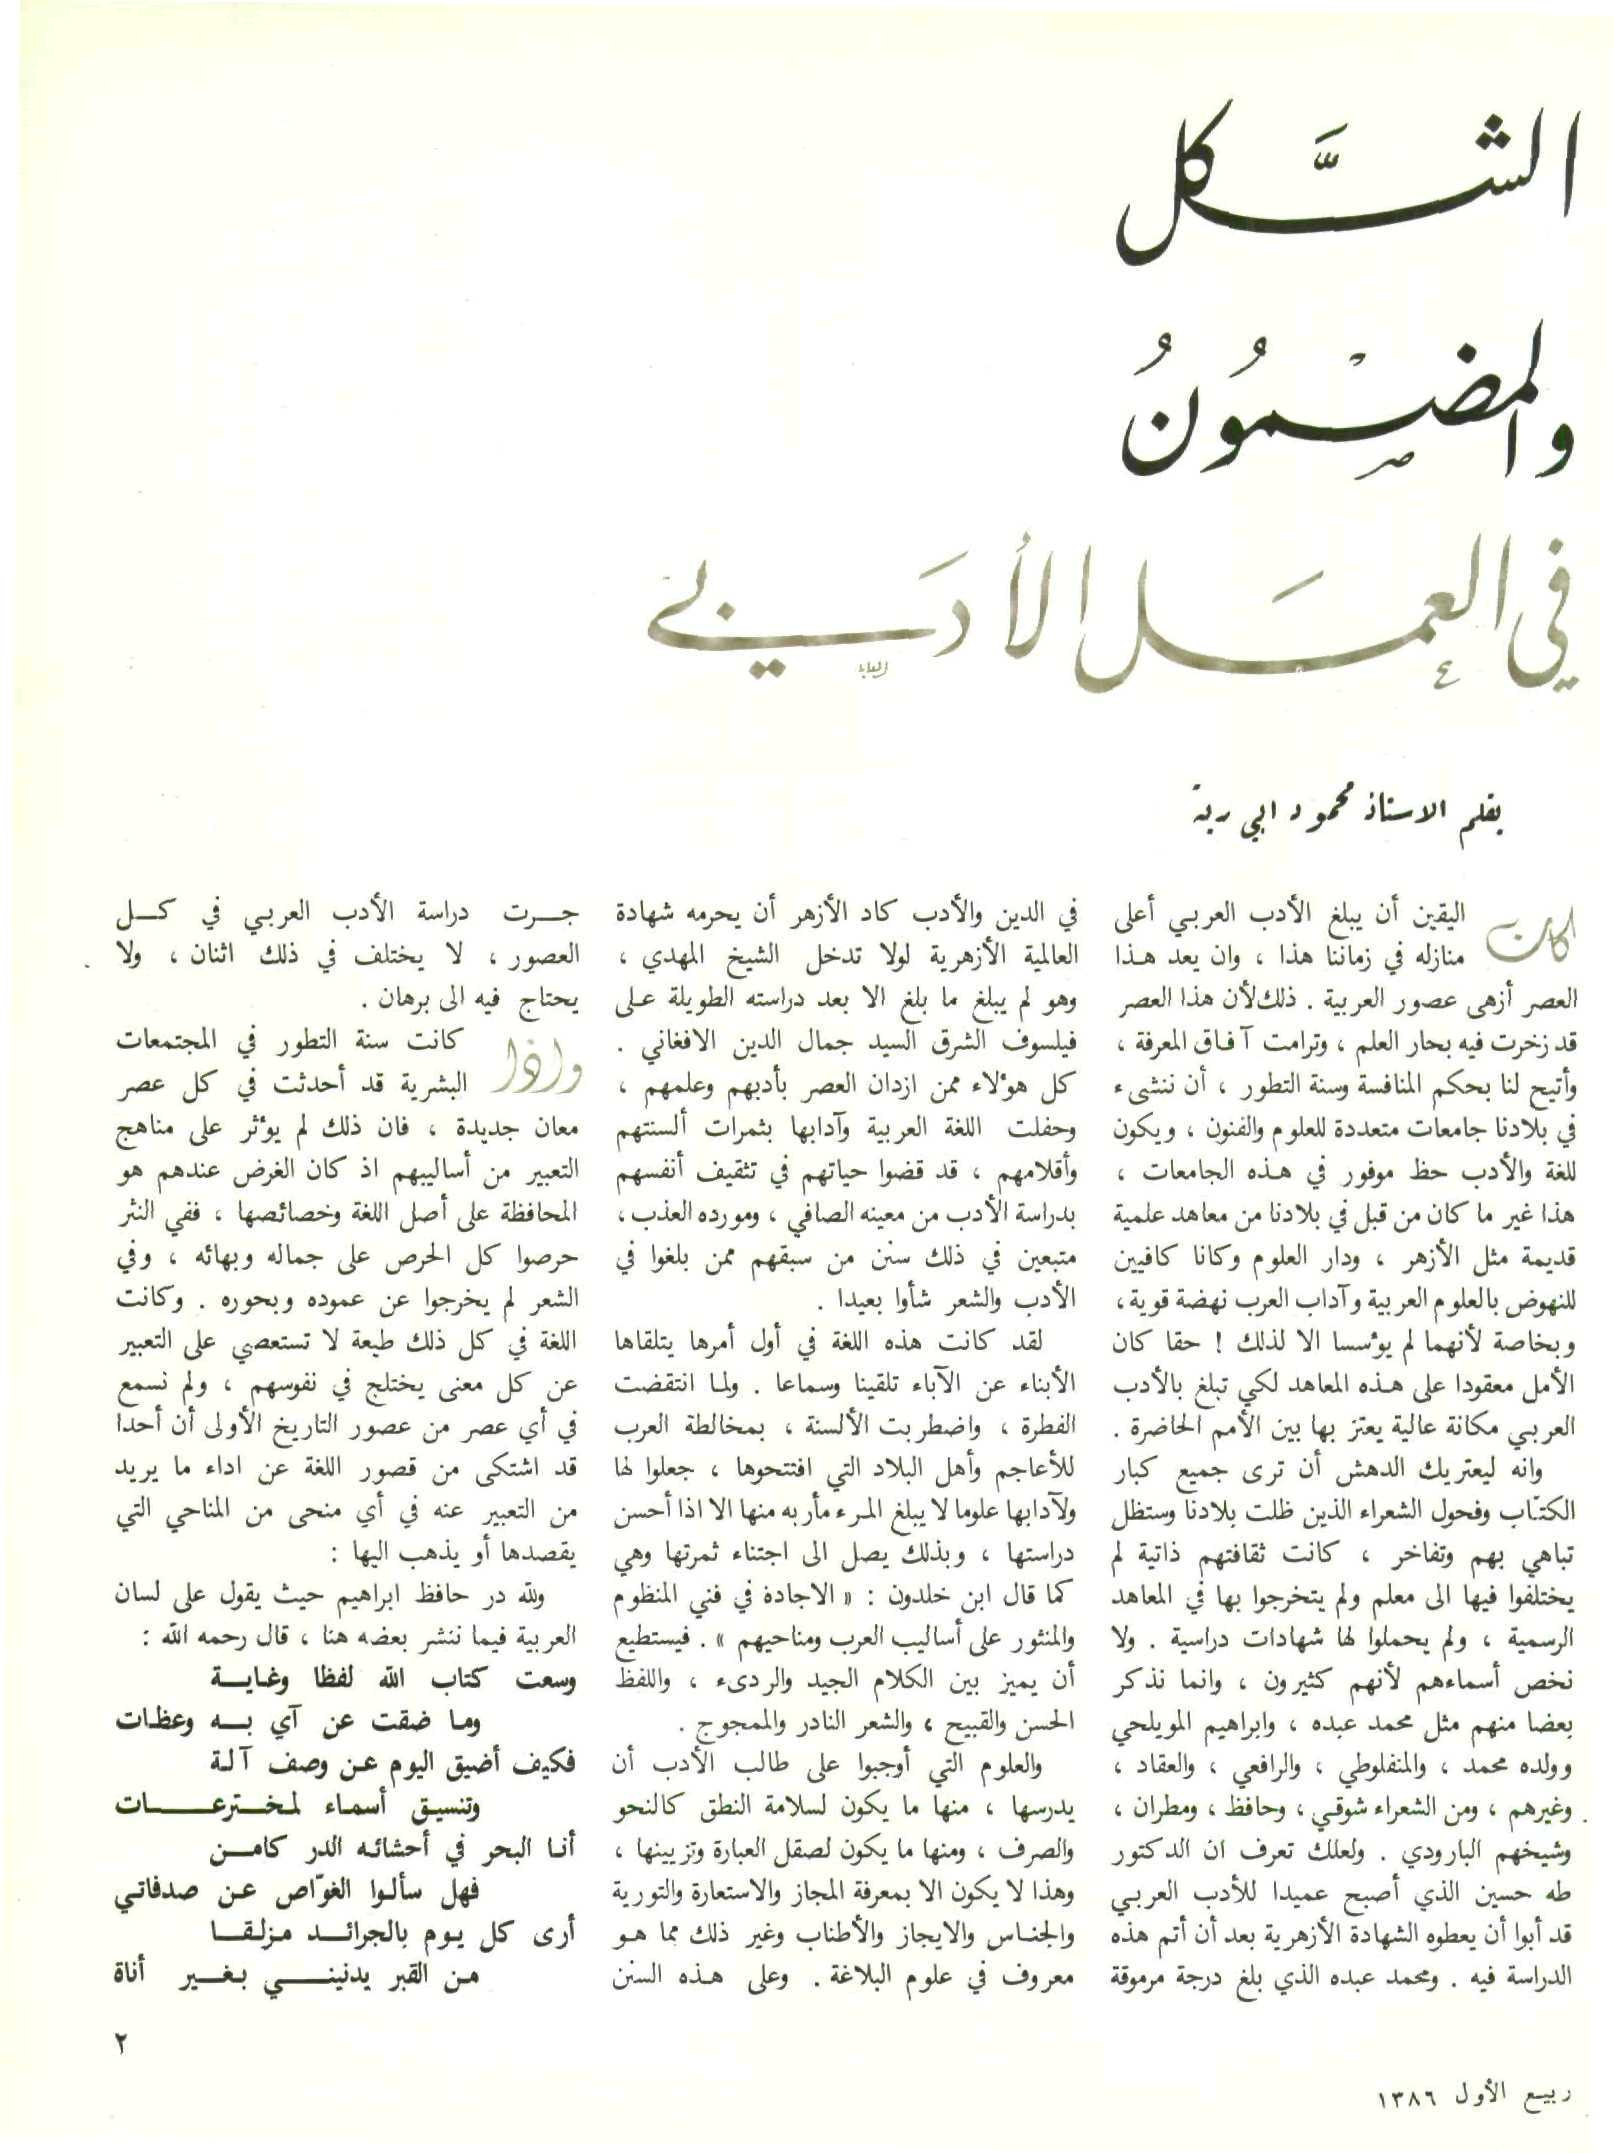 الشَّكل
والمضْمُونُ
في العمَل الأدَبي
بقلم الاستاذ محمود ابي رية
كان اليقين أن يبلغ الأدب العربي أعلى
منازله في زماننا هذا ، وان يعد هذا
العصر أزهى عصور العربية . ذلك لأن هذا العصر
قد زخرت فيه بحار العلم ، وترامت آفاق المعرفة ،
وأتيح لنا بحكم المنافسة وسنة التطور ، أن ننشىء
في بلادنا جامعات متعددة للعلوم والفنون ، ويكون
للغة والأدب حظ موفور في هذه الجامعات ،
هذا غير ما كان من قبل في بلادنا من معاهد علمية
قديمة مثل الأزهر ، ودار العلوم وكانا كافيين
للنهوض بالعلوم العربية وآداب العرب نهضة قوية ،
وبخاصة لأنهما لم يؤسسا الا لذلك ! حقا كان
الأمل معقودا على هذه المعاهد لكي تبلغ بالأدب
العربي مكانة عالية يعتز بها بين الأمم الحاضرة .
وانه ليعتريك الدهش أن ترى جميع كبار
الكتّاب وفحول الشعراء الذين ظلت بلادنا وستظل
تباهي بهم وتفاخر ، كانت ثقافتهم ذاتية لم
يختلفوا فيها الى معلم ولم يتخرجوا بها في المعاهد
الرسمية ، ولم يحملوا لها شهادات دراسية . ولا
نخص أسماءهم لأنهم كثيرون ، وانما نذكر
بعضا منهم مثل محمد عبده ، وابراهيم المويلحي
وولده محمد ، والمنفلوطي ، والرافعي ، والعقاد ،
وغيرهم ، ومن الشعراء شوقي ، وحافظ ، ومطران ،
وشيخهم البارودي . ولعلك تعرف ان الدكتور
طه حسين الذي أصبح عميدا للأدب العربي
قد أبوا أن يعطوه الشهادة الأزهرية بعد أن أتم هذه
الدراسة فيه . ومحمد عبده الذي بلغ درجة مرموقة
في الدين والأدب كاد الأزهر أن يحرمه شهادة
العالمية الأزهرية لولا تدخل الشيخ المهدي ،
وهو لم يبلغ ما بلغ الا بعد دراسته الطويلة على
فيلسوف الشرق السيد جمال الدين الافغاني .
كل هؤلاء ممن ازدان العصر بأدبهم وعلمهم ،
وحفلت اللغة العربية وآدابها بثمرات ألسنتهم
وأقلامهم ، قد قضوا حياتهم في تثقيف أنفسهم
بدراسة الأدب من معينه الصافي ، ومورده العذب ،
متبعين في ذلك سنن من سبقهم ممن بلغوا في
الأدب والشعر شأوا بعيدا .
لقد كانت هذه اللغة في أول أمرها يتلقاها
الأبناء عن الآباء تلقينا وسماعا . ولما انتقضت
الفطرة ، واضطربت الألسنة ، بمخالطة العرب
للأعاجم وأهل البلاد التي افتتحوها ، جعلوا لها
ولآدابها علوما لا يبلغ المرء مأربه منها الا اذا أحسن
دراستها ، وبذلك يصل الى اجتناء ثمرتها وهي
كما قال ابن خلدون : « الاجادة في فني المنظوم
والمنثور على أساليب العرب ومناحيهم » . فيستطيع
أن يميز بين الكلام الجيد والردىء ، واللفظ
الحسن والقبيح ، والشعر النادر والممجوج .
والعلوم التي أوجبوا على طالب الأدب أن
يدرسها ، منها ما يكون لسلامة النطق كالنحو
والصرف ، ومنها ما يكون لصقل العبارة وتزيينها ،
وهذا لا يكون الا بمعرفة المجاز والاستعارة والتورية
والجناس والايجاز والأطناب وغير ذلك مما هو
معروف في علوم البلاغة . وعلى هذه السنن
جرت دراسة الأدب العربي في كل
العصور ، لا يختلف في ذلك اثنان ، ولا
يحتاج فيه الى برهان .
واذا كانت سنة التطور في المجتمعات
البشرية قد أحدثت في كل عصر
معان جديدة ، فان ذلك لم يؤثر على مناهج
التعبير من أساليبهم اذ كان الغرض عندهم هو
المحافظة على أصل اللغة وخصائصها ، ففي النثر
حرصوا كل الحرص على جماله وبهائه ، وفي
الشعر لم يخرجوا عن عموده وبحوره . وكانت
اللغة في كل ذلك طيعة لا تستعصي على التعبير
عن كل معنى يختلج في نفوسهم ، ولم نسمع
في أي عصر من عصور التاريخ الأولى أن أحدا
قد اشتكى من قصور اللغة عن اداء ما يريد
من التعبير عنه في أي منحى من المناحي التي
يقصدها أو يذهب اليها :
ولله در حافظ ابراهيم حيث يقول على لسان
العربية فيما ننشر بعضه هنا ، قال رحمه الله :
وسعت كتاب الله لفظا وغاية
وما ضقت عن آي به وعظات
فكيف أضيق اليوم عن وصف آلة
وتنسيق أسماء لمخترعات
أنا البحر في أحشائه الدر كامن
فهل سألوا الغوّاص عن صدفاتي
أرى كل يوم بالجرائد مزلقا
من القبر يدنيني بغير أناة
٢
ربيع الأول ١٣٨٦